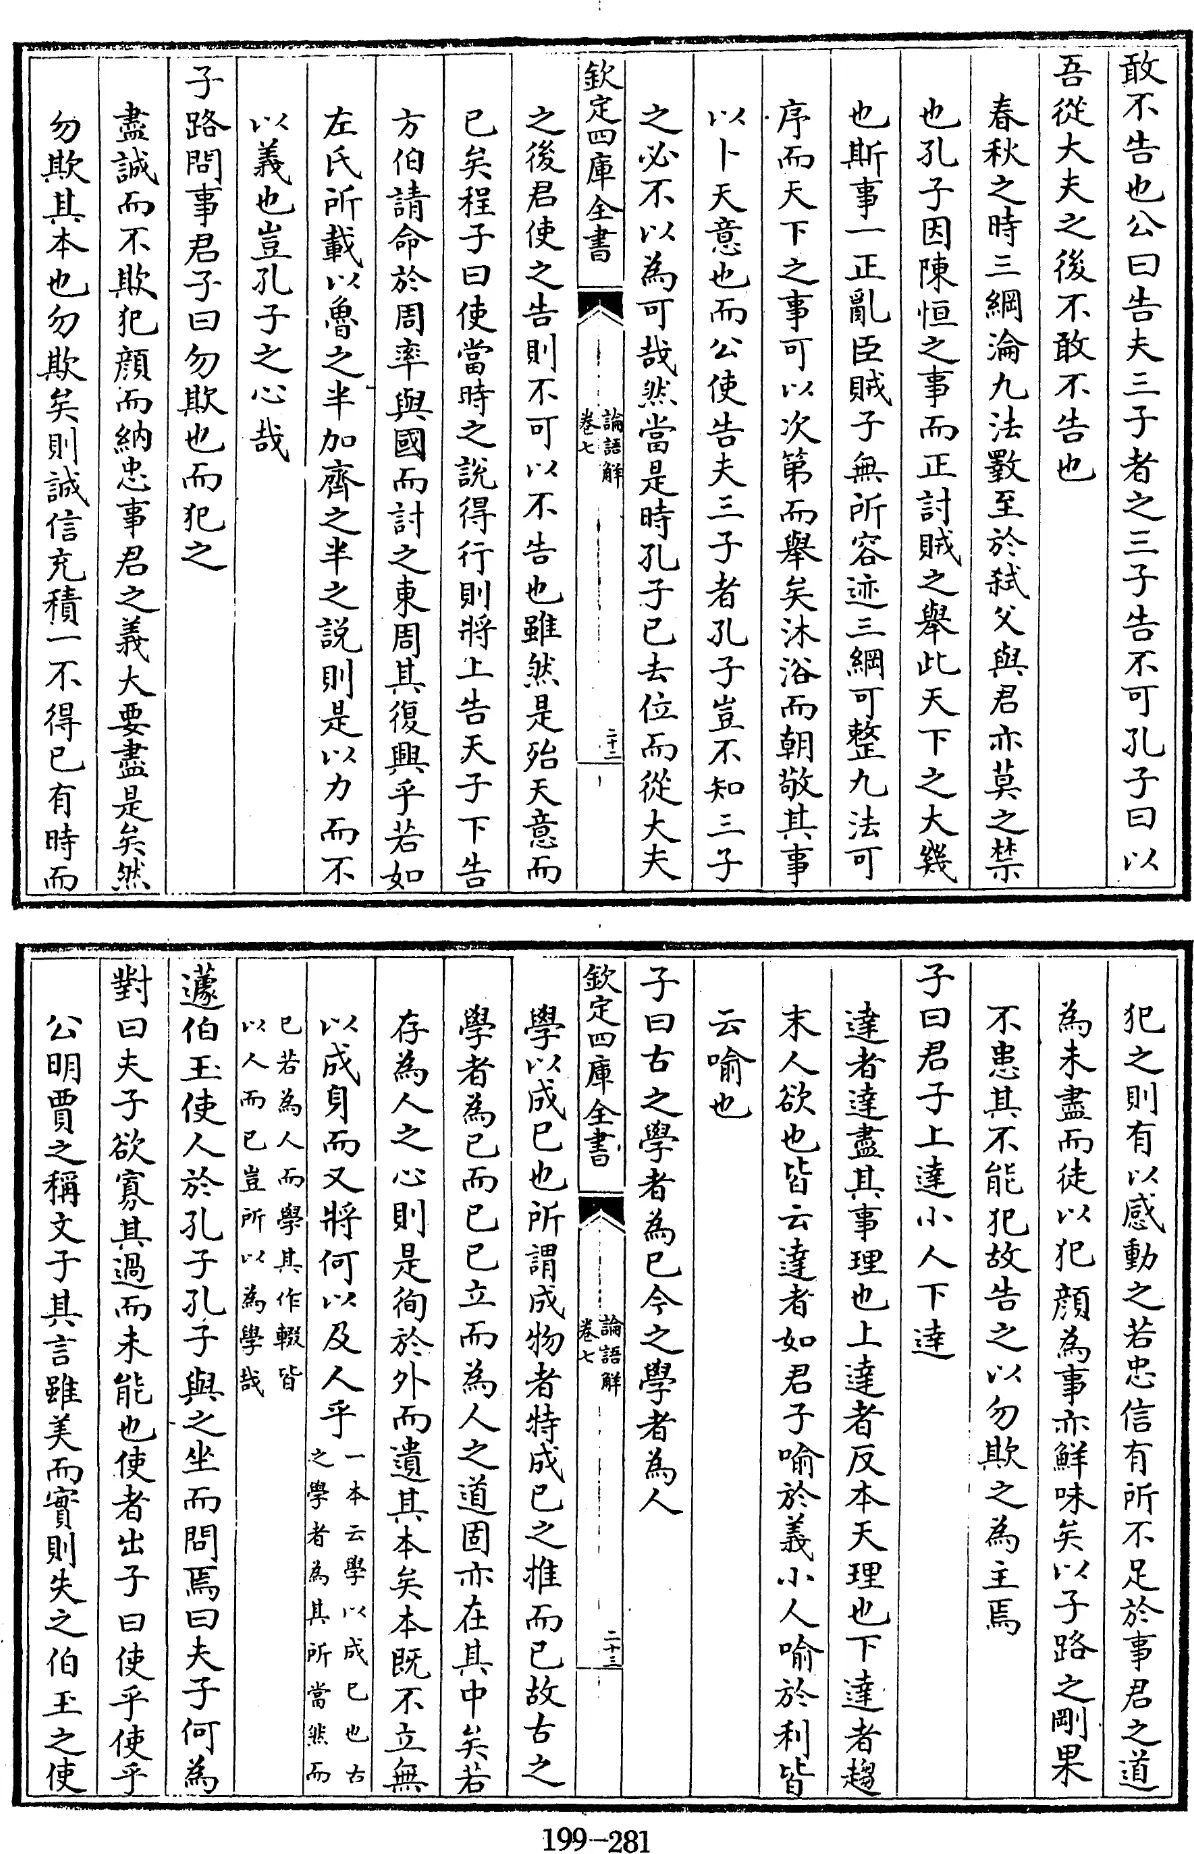 敢不告也公曰告夫三子者之三子告不可孔子曰以
吾從大夫之後不敢不告也
春秋之時三綱淪九法斁至於弑父與君亦莫之禁
也孔子因陳恒之事而正討賊之舉此天下之大幾
也斯事一正亂臣賊子無所容迹三綱可整九法可
序而天下之事可以次第而舉矣沐浴而朝敬其事
以卜天意也而公使告夫三子者孔子豈不知三子
之必不以為可哉然當是時孔子已去位而從大夫
欽定四庫全書
論語解
卷七
二十二
之後君使之告則不可以不告也雖然是殆天意而
已矣程子曰使當時之說得行則將上告天子下告
方伯請命於周率與國而討之東周其復興乎若如
左氏所載以魯之半加齊之半之說則是以力而不
以義也豈孔子之心哉
子路問事君子曰勿欺也而犯之
盡誠而不欺犯顔而納忠事君之義大要盡是矣然
勿欺其本也勿欺矣則誠信充積一不得已有時而
犯之則有以感動之若忠信有所不足於事君之道
為未盡而徒以犯顔為事亦鮮味矣以子路之剛果
不患其不能犯故告之以勿欺之為主焉
子曰君子上達小人下達
達者達盡其事理也上達者反本天理也下達者趨
末人欲也皆云達者如君子喻於義小人喻於利皆
云喻也
子曰古之學者為己今之學者為人
欽定四庫全書
論語解
卷七
二十三
學以成已也所謂成物者特成已之推而已故古之
學者為已而已已立而為人之道固亦在其中矣若
存為人之心則是徇於外而遺其本矣本既不立無
以成身而又將何以及人乎
一本云學以成已也古
之學者為其所當然而
已若為人而學其作輟皆
以人而已豈所以為學哉
蘧伯玉使人於孔子孔子與之坐而問焉曰夫子何為
對曰夫子欲寡其過而未能也使者出子曰使乎使乎
公明賈之稱文子其言雖美而實則失之伯玉之使
199-281